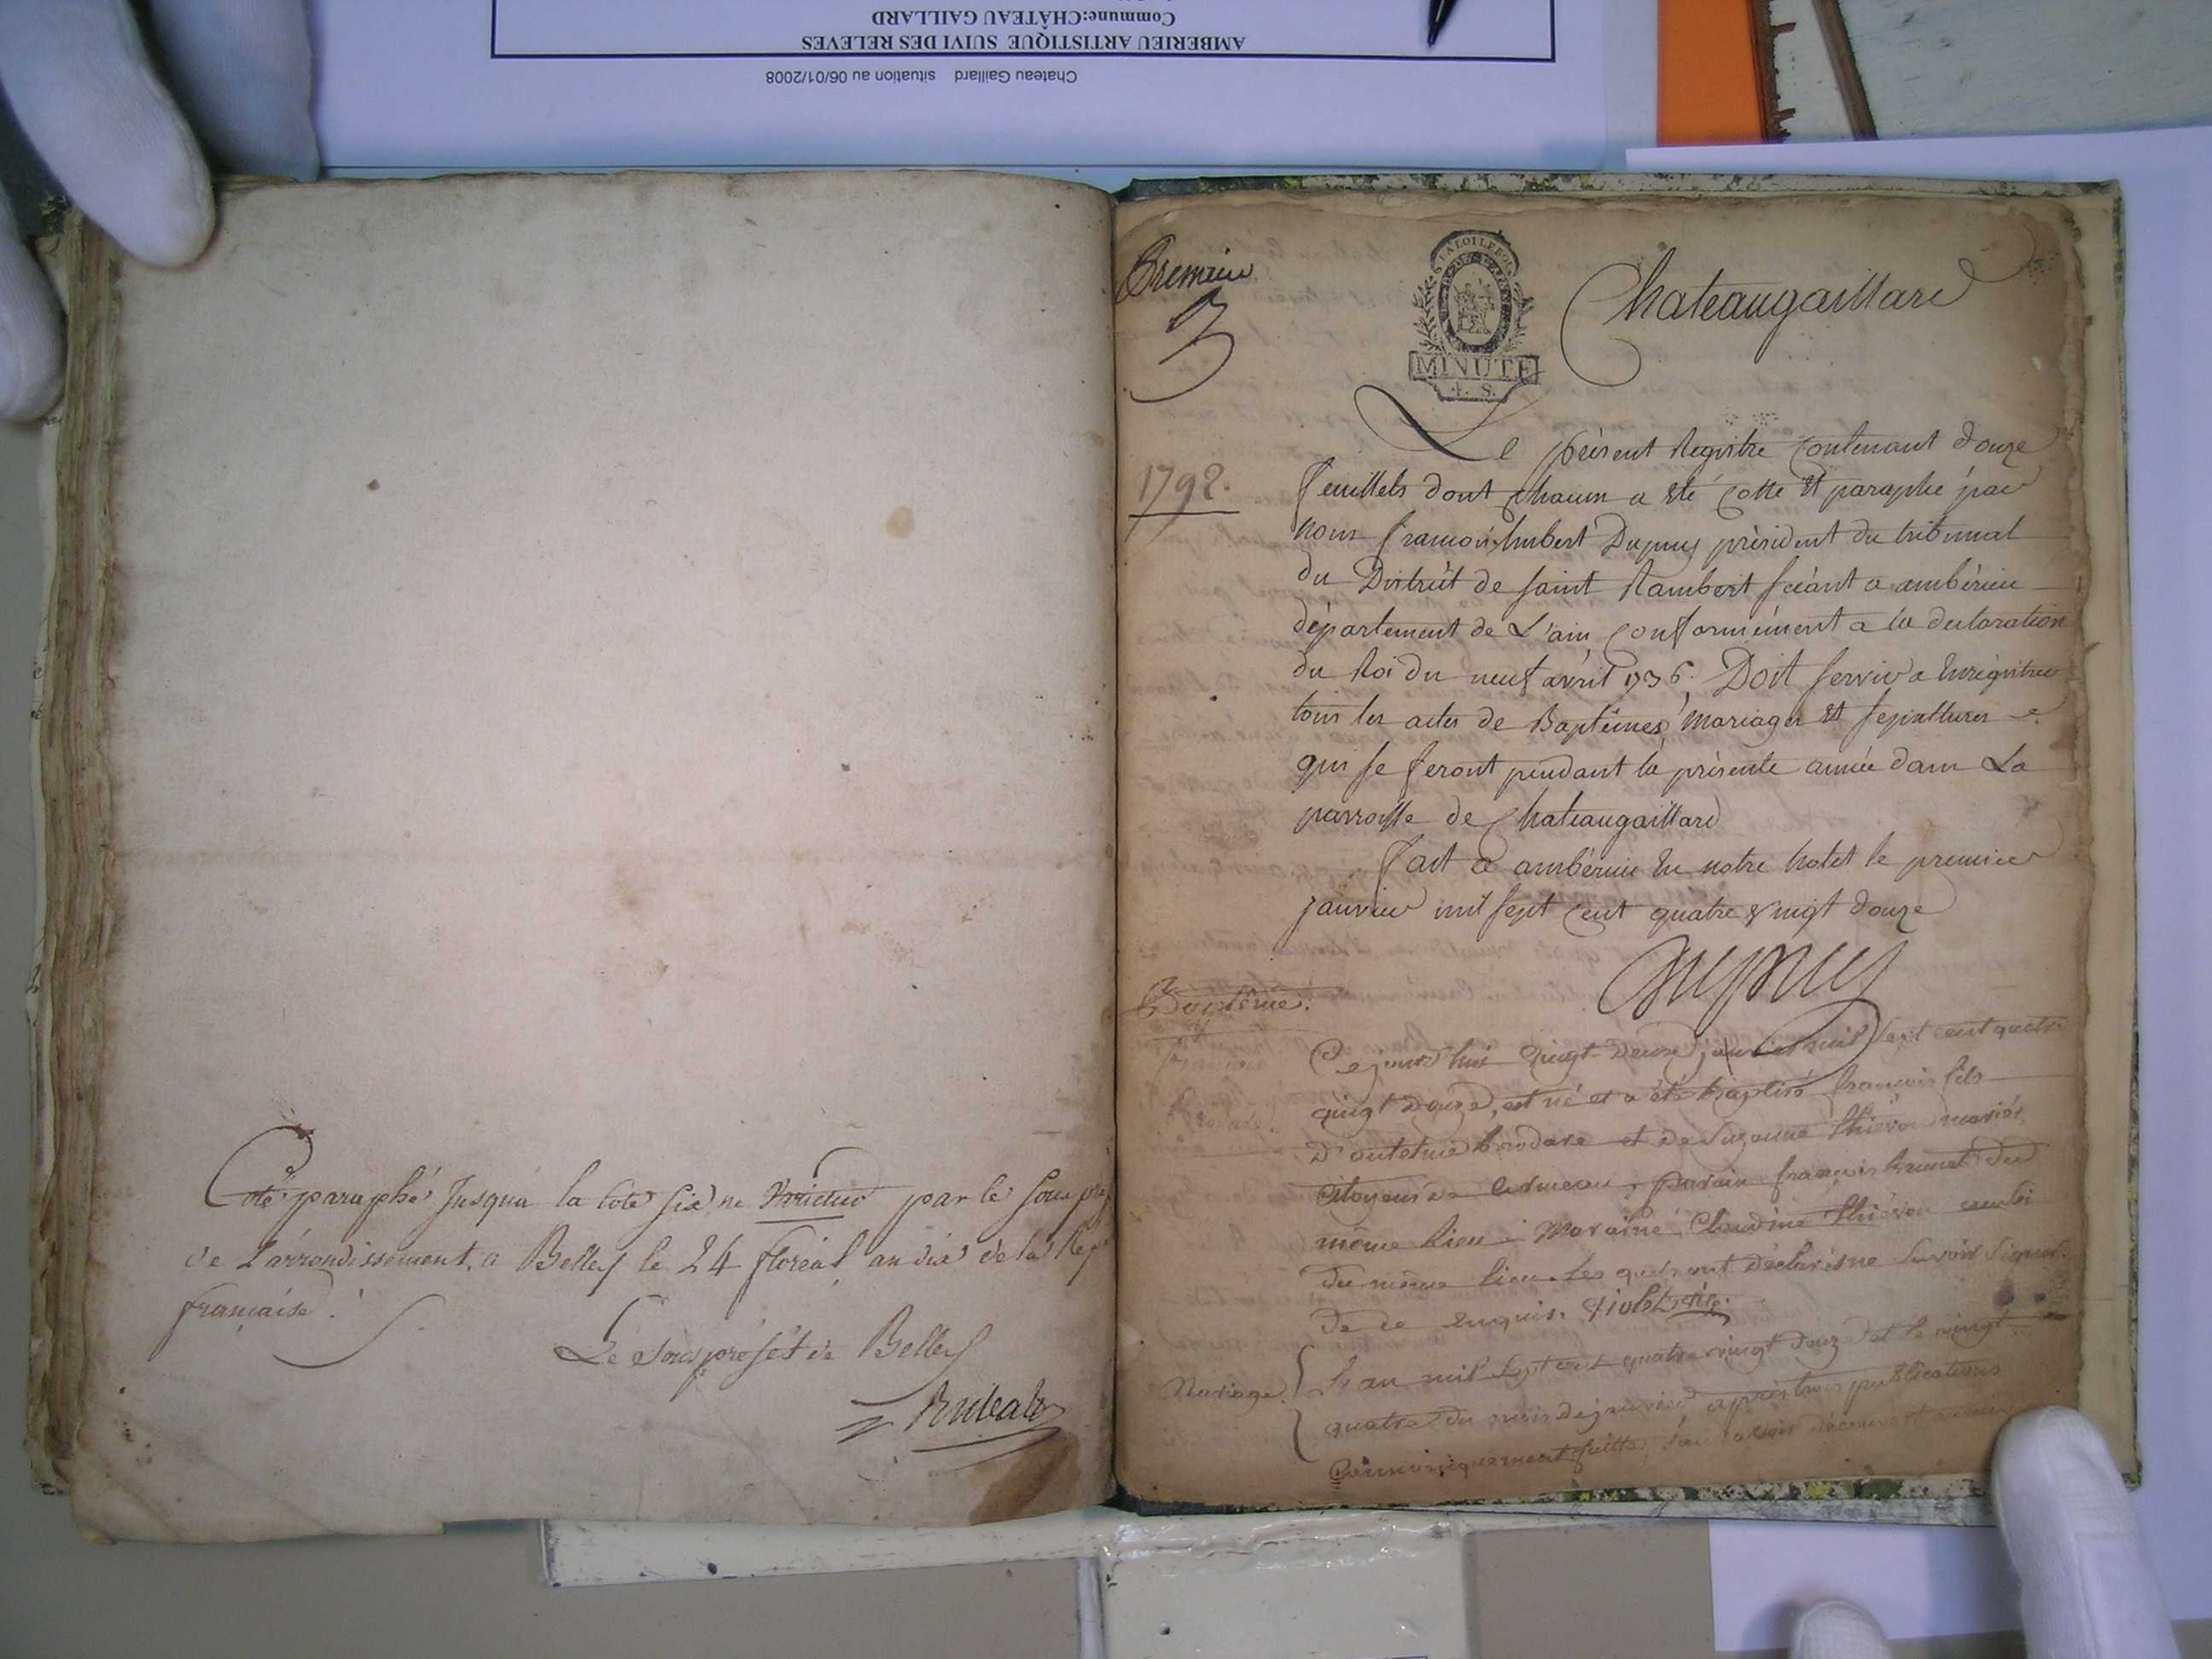 Commune:CHÂTEAU GAILLARD
AMBERIEU ARTISTIQUE SUIVI DES RELEVES
Chateau Gaillard situation au 06/01/2008
Coté paraphé Jusqu'a la cote six ne Varietur par le Sous pref
de L'arrondissement, a Belley le 24 floréal an dix de la Rep
française.
Le Sous préfét de Belley
Premier
LA LOI LE ROI
MINUTE
4. S.
Chateaugaillard
1792.
Le présent Registre Contenant douze
feuillets dont chacun a été Cotté Et paraphé par
nous francois humbert Dupuy président du tribunal
du District de Saint Rambert Séant a ambérieu
département de L'ain Conformément a la declaration
du Roi du neuf avril 1736. Doit Servir a Enrégistrer
tous les actes de Baptêmes, Mariages Et Sepultures
qui se feront pendant la présente année dans La
parroisse de Chateaugaillard
fait a ambérieu En notre hotel le premier
janvier mil sept Cent quatre vingt douze
Dupuy
Baptême.
françois
Cejourd'hui vingt-deux janvier mil sept cent quatre
vingt douze, est né et a été baptisé françois fils
D'antelme brodare et de Suzanne thiévon mariés,
Citoyens de Cormoz, parain françois brunet du
même lieu. Maraine Claudine thiévon aussi
du même lieu. Les quels ont déclaré ne savoir signer
de ce enquis. violet
Mariage.
L'an mil sept cent quatre vingt douze et le vingt
quatre du mois de janvier après trois publications
Cannoniquement faittes, sans avoir découvert aucun